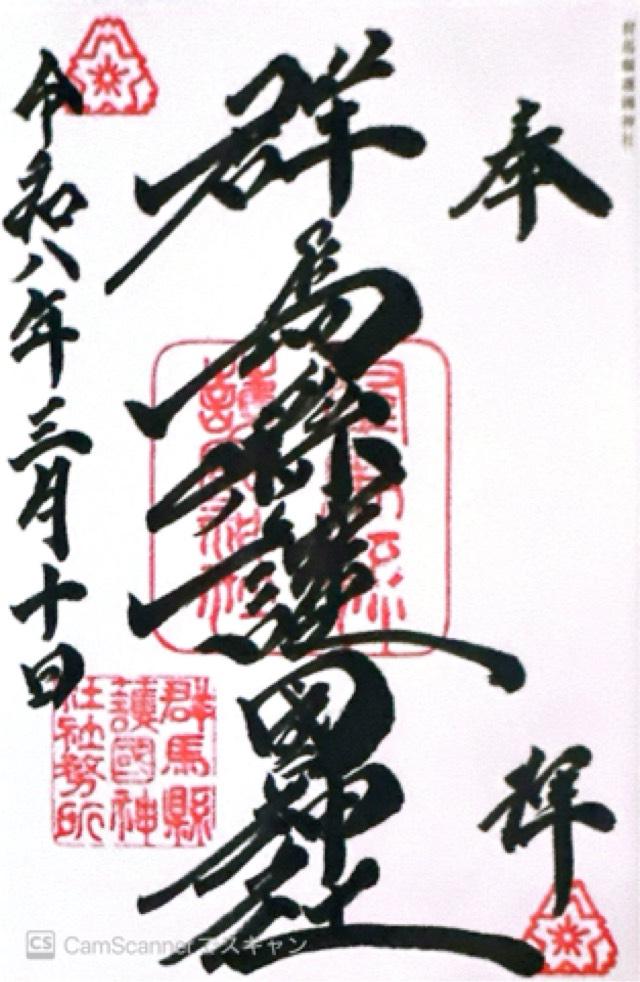 群馬縣護國神社
奉拝
群馬縣護國神社
群馬縣
護國神
社社務所
令和八年三月十日
CS CamScannerでスキャン